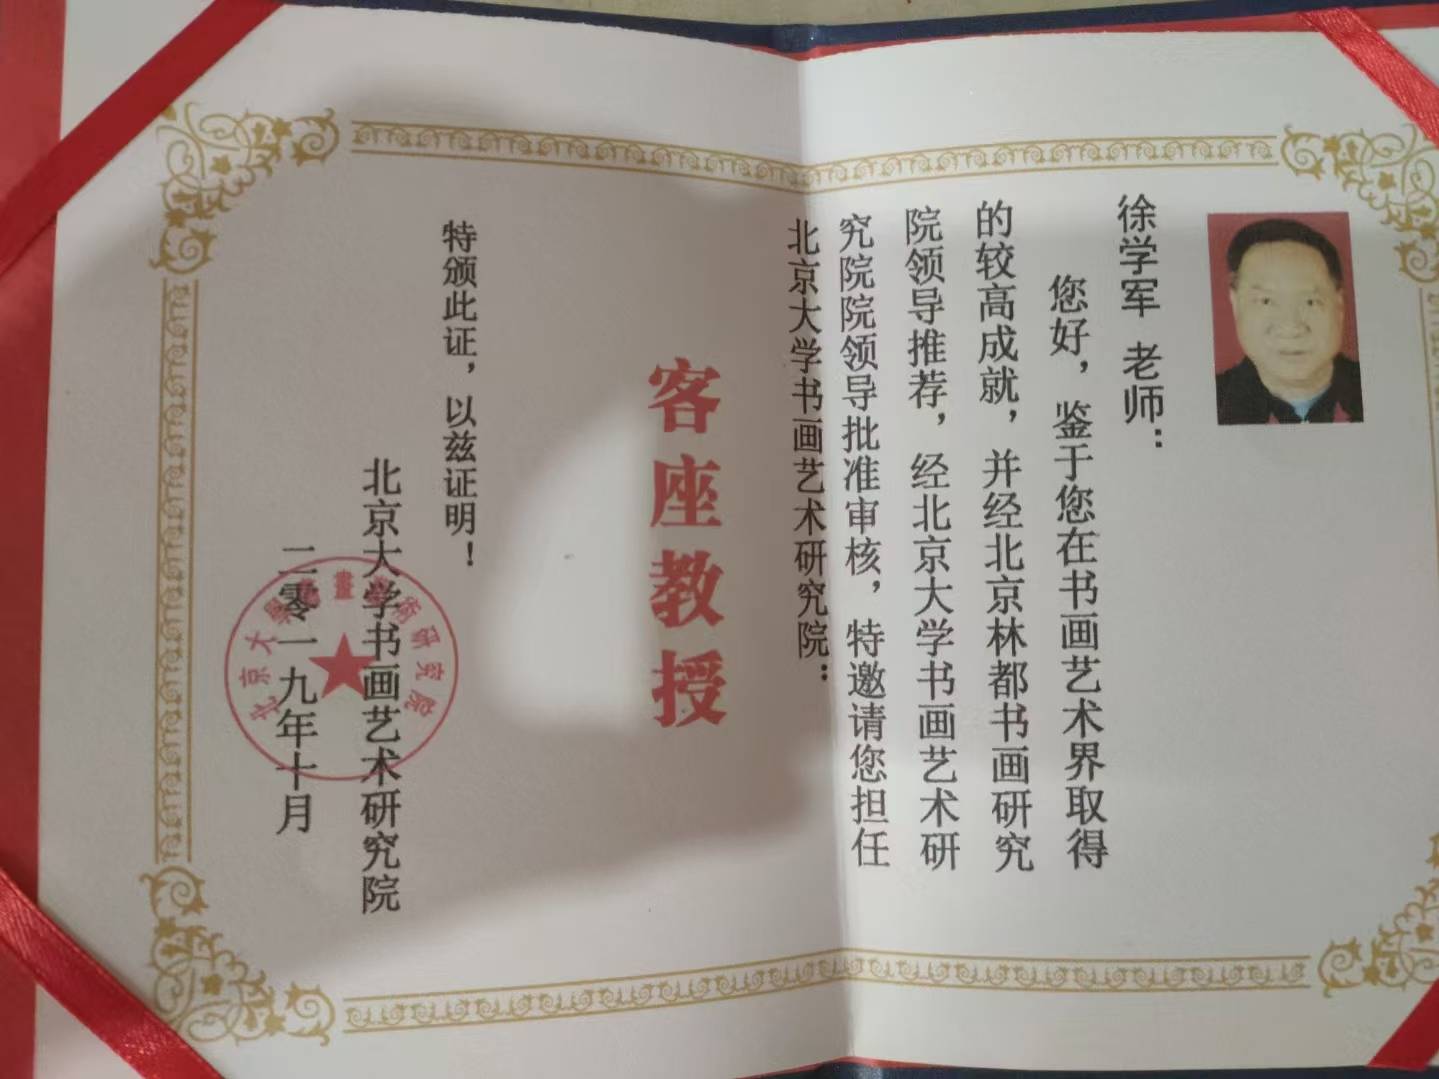 徐学军 老师：
您好，鉴于您在书画艺术界取得
的较高成就，并经北京林都书画研究
院领导推荐，经北京大学书画艺术研
究院院领导批准审核，特邀请您担任
北京大学书画艺术研究院：
客座教授
特颁此证，以兹证明！
北京大学书画艺术研究院
二零一九年十月
北京大學 畫 術研究院